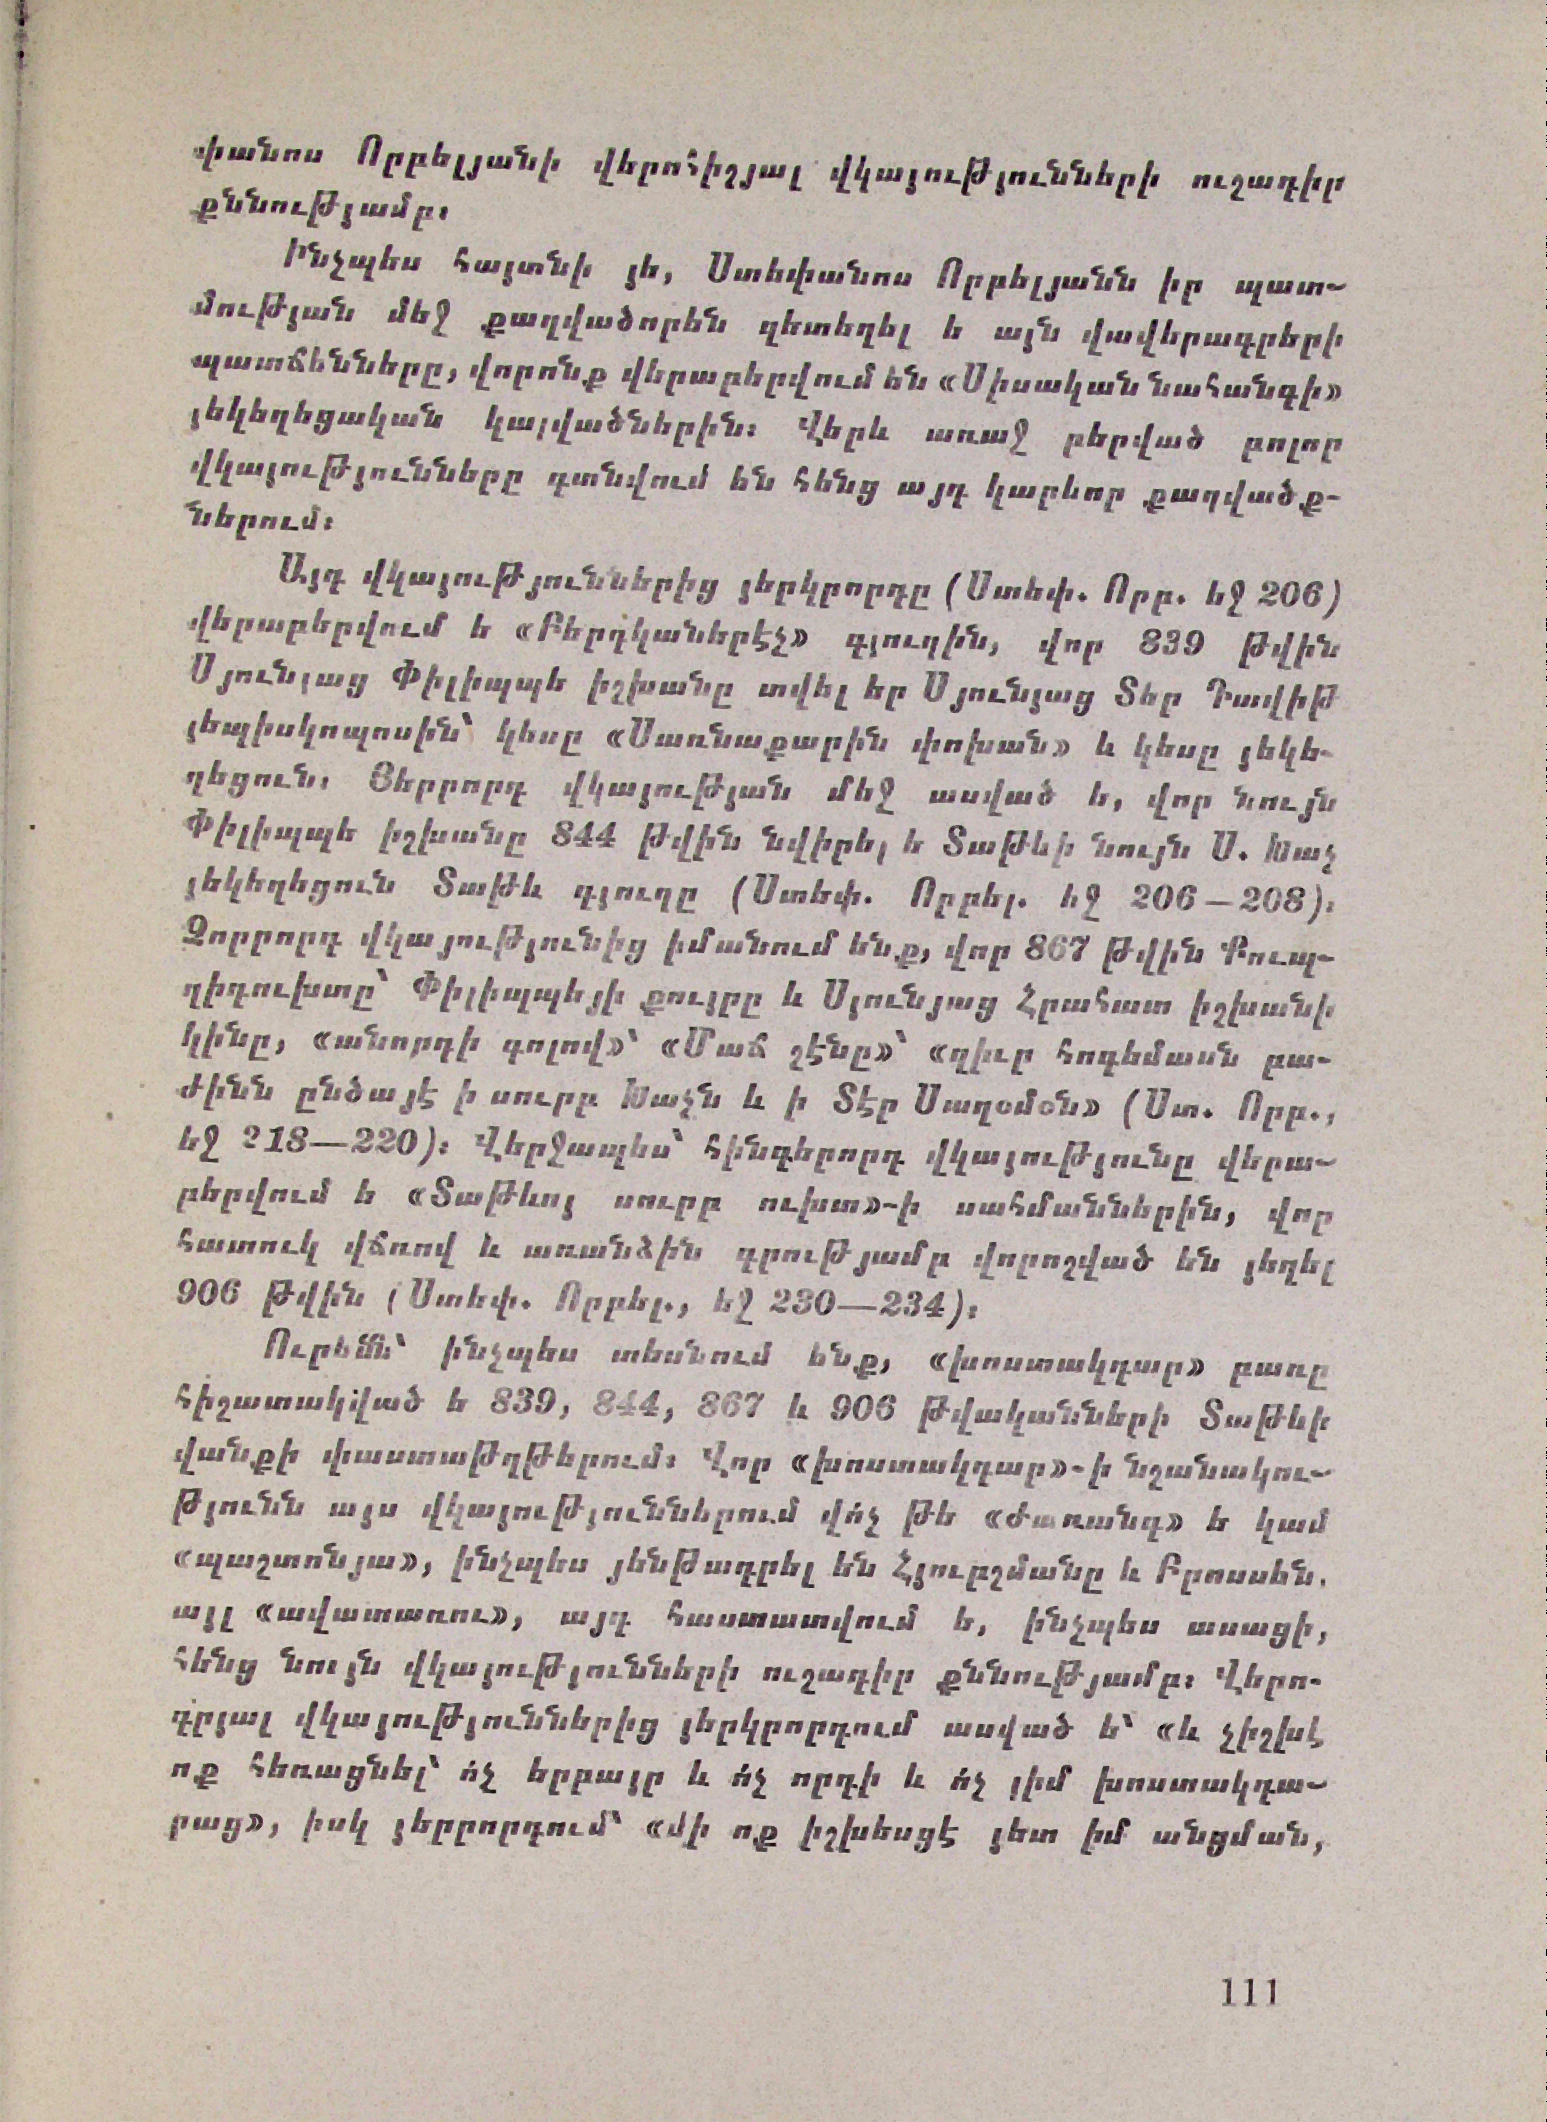 փանոս Որբելյանի վերոհիշյալ վկայությունների ուշադիր
քննությամբ։
Ինչպես հայտնի յե, Ստեփանոս Որբելյանն իր պատ-
մության մեջ քաղվածորեն զետեղել ե այն վավերագրերի
պատճենները, վորոնք վերաբերվում են «Սիսական նահանգի»
յեկեղեցական կալվածներին։ Վերև առաջ բերված բոլոր
վկայությունները գտնվում են հենց այդ կարևոր քաղվածք-
ներում։
Այդ վկայություններից յերկրորդը (Ստեփ. Որբ. եջ 206)
վերաբերվում ե «Բերդկաներէչ» գյուղին, վոր 839 թվին
Սյունյաց Փիլիպպե իշխանը տվել եր Սյունյաց Տեր Դավիթ
յեպիսկոպոսին՝ կեսը «Սառնաքարին փոխան» և կեսը յեկե-
ղեցուն։ Յերրորդ վկայության մեջ ասված ե, վոր նույն
Փիլիպպե իշխանը 844 թվին նվիրել ե Տաթևի նույն Ս. Խաչ
յեկեղեցուն Տաթև գյուղը (Ստեփ. Որբել. եջ 206—208)։
Չորրորդ վկայությունից իմանում ենք, վոր 867 թվին Քուպ-
ղիդուխտը՝ Փիլիպպեյի քույրը և Սյունյաց Հրահատ իշխանի
կինը, «անորդի գոլով»՝ «Մաճ շէնը»՝ «ղիւր հոգեմասն բա-
ժինն ընծայէ ի սուրբ Խաչն և ի Տէր Սաղօմօն» (Ստ. Որբ.,
եջ 218—220)։ Վերջապես՝ հինգերորդ վկայությունը վերա-
բերվում ե «Տաթևոյ սուրբ ուխտ»-ի սահմաններին, վոր
հատուկ վճռով և առանձին գրությամբ վորոշված են յեղել
906 թվին (Ստեփ. Որբել., եջ 230—234)։
Ուրեմն՝ ինչպես տեսնում ենք, «խոստակդար» բառը
հիշատակված ե 839, 844, 867 և 906 թվականների Տաթևի
վանքի փաստաթղթերում։ Վոր «խոստակդար»-ի նշանակու-
թյունն այս վկայություններում վո՛չ թե «ժառանգ» ե կամ
«պաշտոնյա», ինչպես յենթադրել են Հյուբշմանը և Բրոսսեն,
այլ «ավատառու», այդ հաստատվում ե, ինչպես ասացի,
հենց նույն վկայությունների ուշադիր քննությամբ։ Վերո-
գրյալ վկայություններից յերկրորդում ասված ե՝ «և չիշխէ
ոք հեռացնել՝ ո՛չ եղբայր և ո՛չ որդի և ո՛չ յիմ խոստակդա-
րաց», իսկ յերրորդում՝ «մի ոք իշխեսցէ յետ իմ անցման,
111